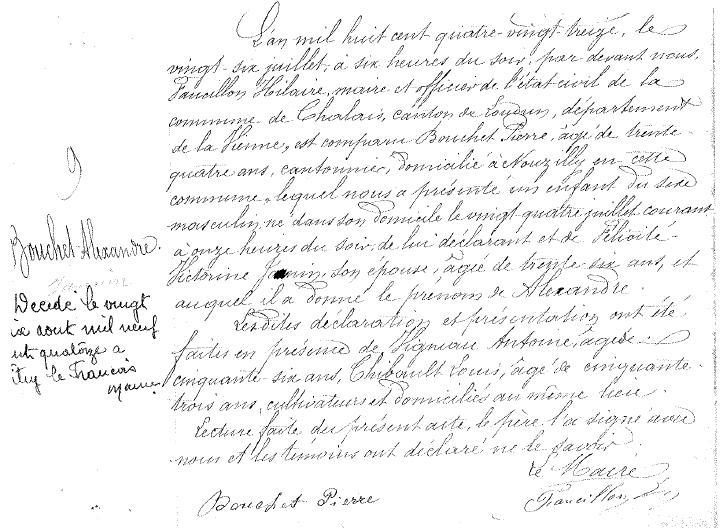 L'an mil huit cent quatre-vingt-treize, le
vingt-six juillet, à six heures du soir, par devant nous,
Faucillon Hilaire, maire et officier de l'état civil de la
commune de Chalais, canton de Loudun, département
de la Vienne, est comparu Bouchet Pierre, âgé de trente-
quatre ans, cantonnier, domicilié à Nouzilly en cette
commune, lequel nous a présenté un enfant du sexe
masculin, né dans son domicile le vingt quatre juillet courant
à onze heures du soir, de lui déclarant et de Félicité
Victorine, son épouse, âgée de trente-six ans, et
auquel il a donné le prénom de Alexandre.
Lesdites déclaration et présentation ont été
faites en présence de Vigneau Antoine, âgé de
cinquante-six ans, Thibault Louis, âgé de cinquante-
trois ans, cultivateurs et domiciliés au même lieu.
Lecture faite du présent acte, le père l'a signé avec
nous et les témoins ont déclaré ne le savoir.
Le Maire
Bouchet Pierre
Faucillon
9
Bouchet Alexandre.
Décédé le vingt
ix août mil neuf
nt quatorze a
le Francois